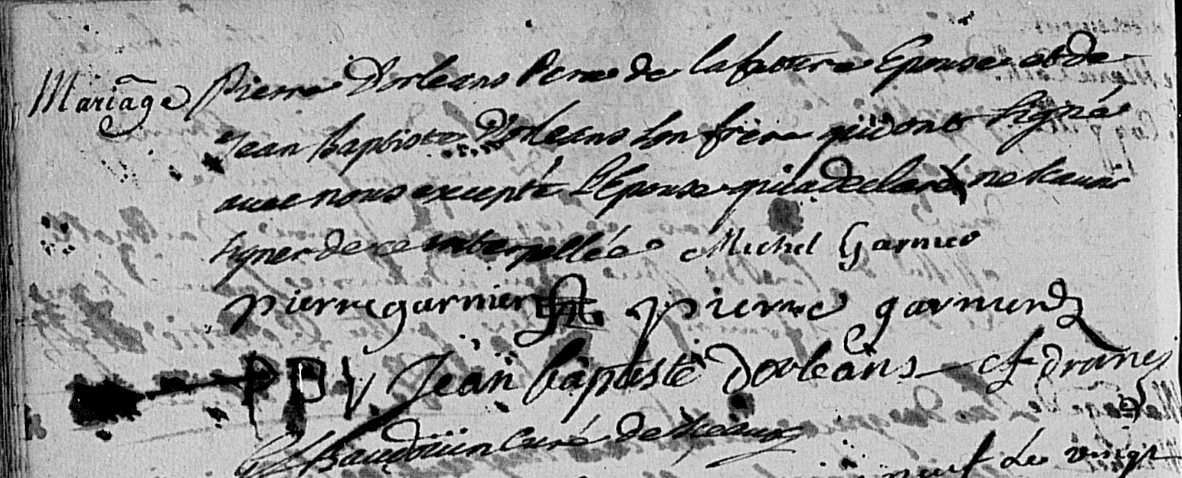 Mariage
Pierre Dorleans Pere de la future Epouse et de
Jean Baptiste Dorleans Son frère qui ont Signé
avec nous excepté L'Epouse qui a declaré ne Scavoir
Signer de ce interpellée Michel Garnier
Pierre garnier Pierre garnier
P D Jean baptiste Dorleans
Baudouin Curé de
neuf Le vingt